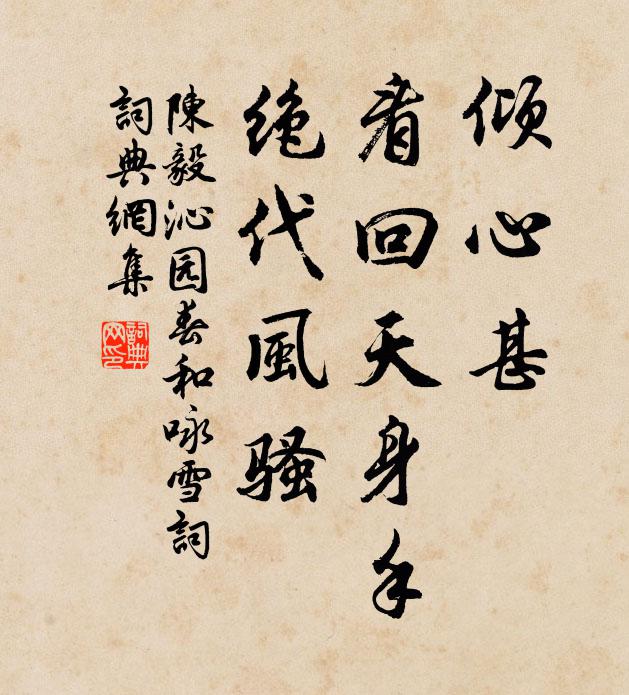 倾心甚
看回天身手
绝代風骚
陳毅沁园春和咏雪詞
詞典網集
詞典网印